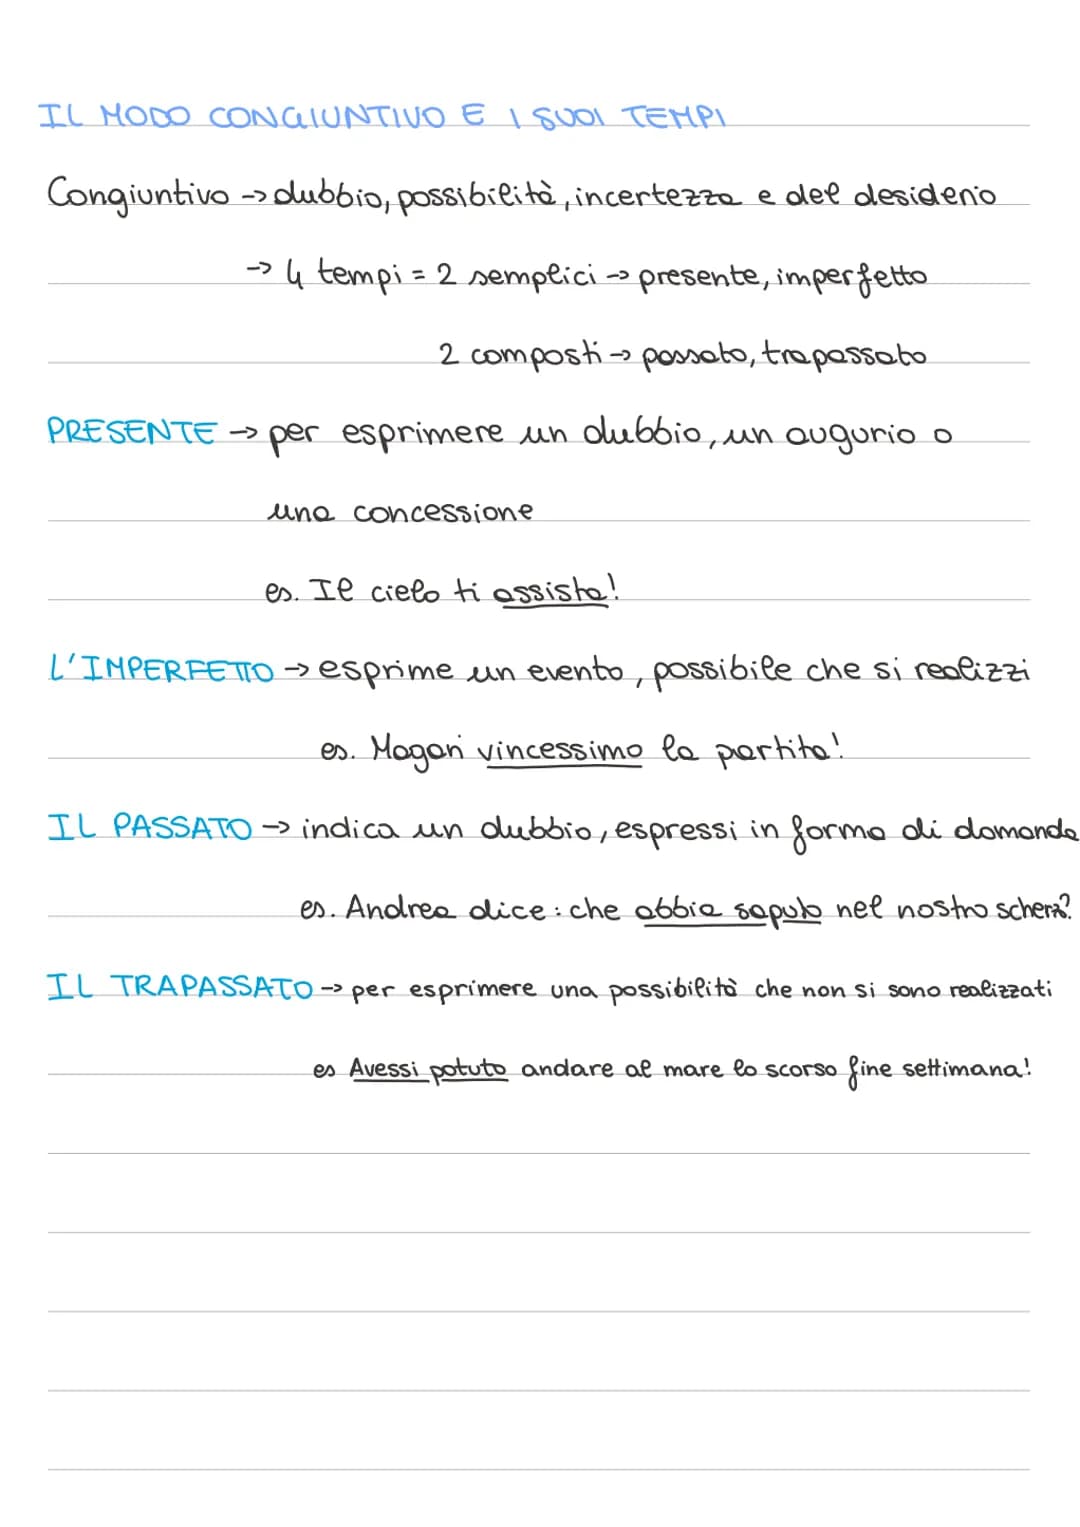 IL MODO CONGIUNTIVO E I SUOI TEMPI
Congiuntivo -> dubbio, possibilità, incertezza e del desiderio
-> 4 tempi = 2 semplici -> presente, imperfetto
2 composti -> passato, trapassato
PRESENTE -> per esprimere un dubbio, un augurio o
una concessione
es. Il cielo ti assista!
L'IMPERFETTO -> esprime un evento, possibile che si realizzi
es. Magari vincessimo la partita!
IL PASSATO -> indica un dubbio, espressi in forma di domanda
es. Andrea dice: che abbia saputo nel nostro scherzo?
IL TRAPASSATO -> per esprimere una possibilità che non si sono realizzati
es Avessi potuto andare al mare lo scorso fine settimana!